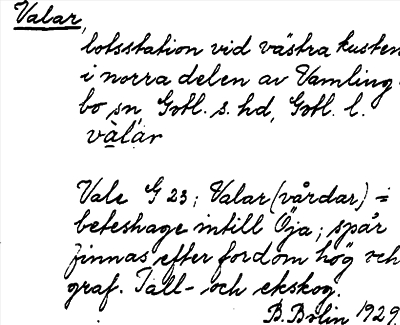 Valar,
lotsstation vid västra kusten
i norra delen av Vamling-
bo sn, Gotl. s. hd, Gotl. l.
vàlàr
Vale G 23; Valar (vårdar) =
beteshage intill Öja; spår
finnas efter fordom hög och
graf. Tall- och ekskog.
B. Bolin 1929.